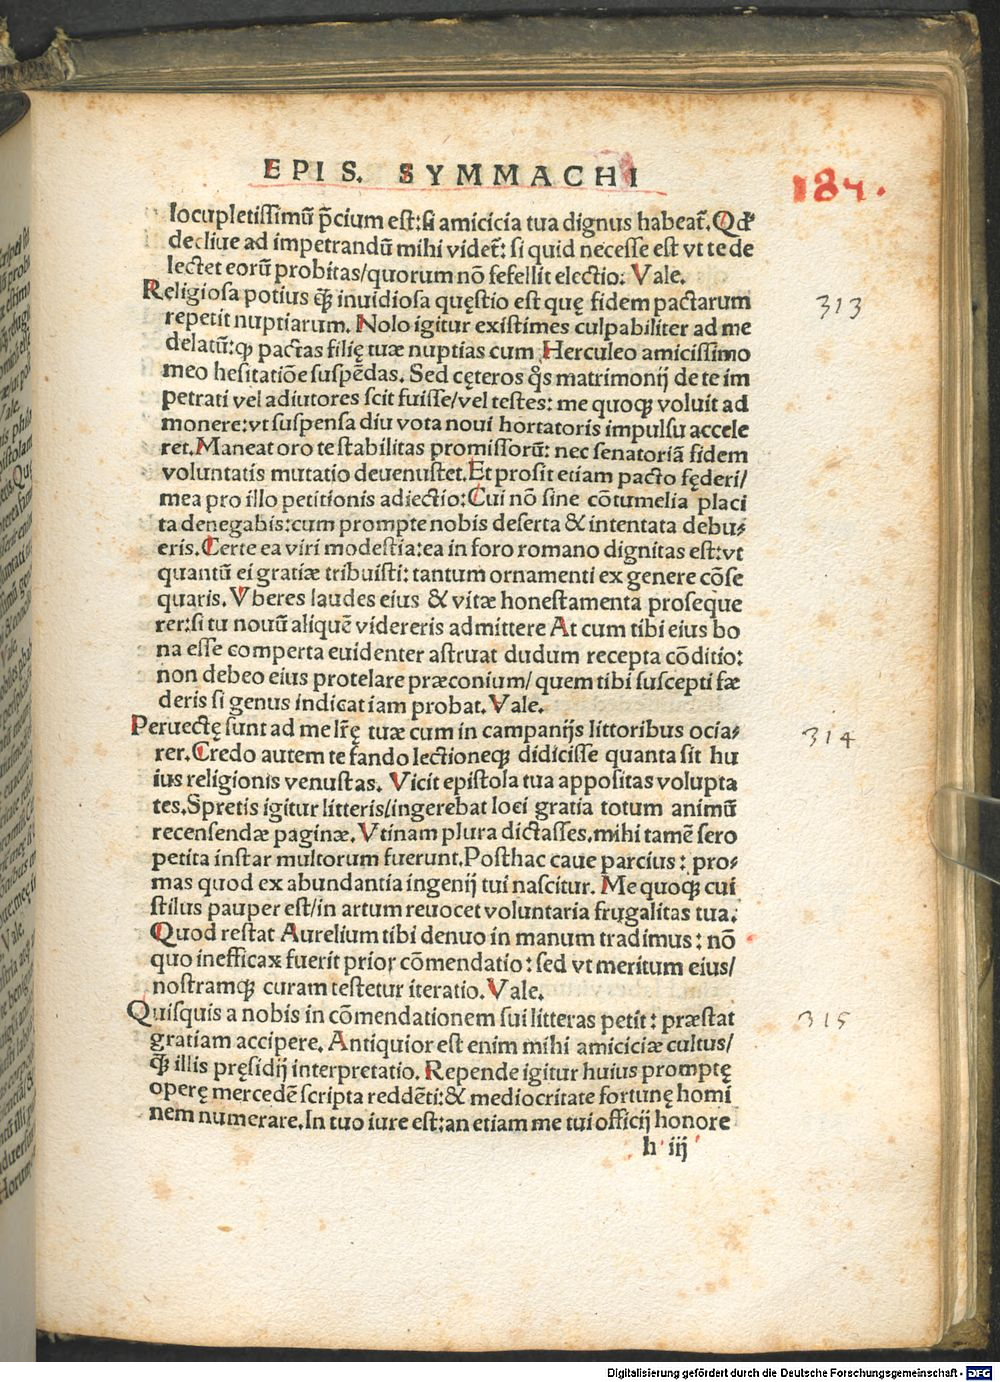 EPIS. SYMMACHI
184.
locupletissimū p̄cium est: si amicicia tua dignus habeat̄. Qđ
decliue ad impetrandū mihi videt̄: si quid necesse est vt te de
lectet eorū probitas/quorum nō fefellit electio. Vale.
Religiosa potius q̄ꝫ inuidiosa quęstio est quę fidem pactarum
313
repetit nuptiarum. Nolo igitur existimes culpabiliter ad me
delatū: ꝙ pactas filię tuæ nuptias cum Herculeo amicissimo
meo hesitatiōe suspēdas. Sed cęteros q̊s matrimonij de te im
petrati vel adiutores scit fuisse/vel testes: me quoqꝫ voluit ad
monere: vt suspensa diu vota noui hortatoris impulsu accele
ret. Maneat oro te stabilitas promissorū: nec senatoriā fidem
voluntatis mutatio deuenustet. Et prosit etiam pacto fęderi/
mea pro illo petitionis adiectio: Cui nō sine cōtumelia placi
ta denegabis: cum prompte nobis deserta & intentata debu⸗
eris. Certe ea viri modestia: ea in foro romano dignitas est: vt
quantū ei gratiæ tribuisti: tantum ornamenti ex genere cōse
quaris. Vberes laudes eius & vitæ honestamenta proseque
rer: si tu nouū aliquē videreris admittere At cum tibi eius bo
na esse comperta euidenter astruat dudum recepta cōditio:
non debeo eius protelare præconium/ quem tibi suscepti fæ
deris si genus indicat iam probat. Vale.
Peruectę sunt ad me lr̄ę tuæ cum in campanijs littoribus ocia⸗
314
rer. Credo autem te fando lectioneqꝫ didicisse quanta sit hu
ius religionis venustas. Vicit epistola tua appositas volupta
tes. Spretis igitur litteris/ingerebat loci gratia totum animū
recensendæ paginæ. Vtinam plura dictasses. mihi tamē sero
petita instar multorum fuerunt. Posthac caue parcius: pro⸗
mas quod ex abundantia ingenij tui nascitur. Me quoqꝫ cui
stilus pauper est/in artum reuocet voluntaria frugalitas tua.
Quod restat Aurelium tibi denuo in manum tradimus: nō
quo inefficax fuerit prior cōmendatio: sed vt meritum eius/
nostramqꝫ curam testetur iteratio. Vale.
Quisquis a nobis in cōmendationem sui litteras petit: præstat
315
gratiam accipere. Antiquior est enim mihi amiciciæ cultus/
q̄ꝫ illis pręsidij interpretatio. Repende igitur huius promptę
operę mercedē scripta reddēti: & mediocritate fortunę homi
nem numerare. In tuo iure est: an etiam me tui officij honore
h iij
Digitalisierung gefördert durch die Deutsche Forschungsgemeinschaft - DFG